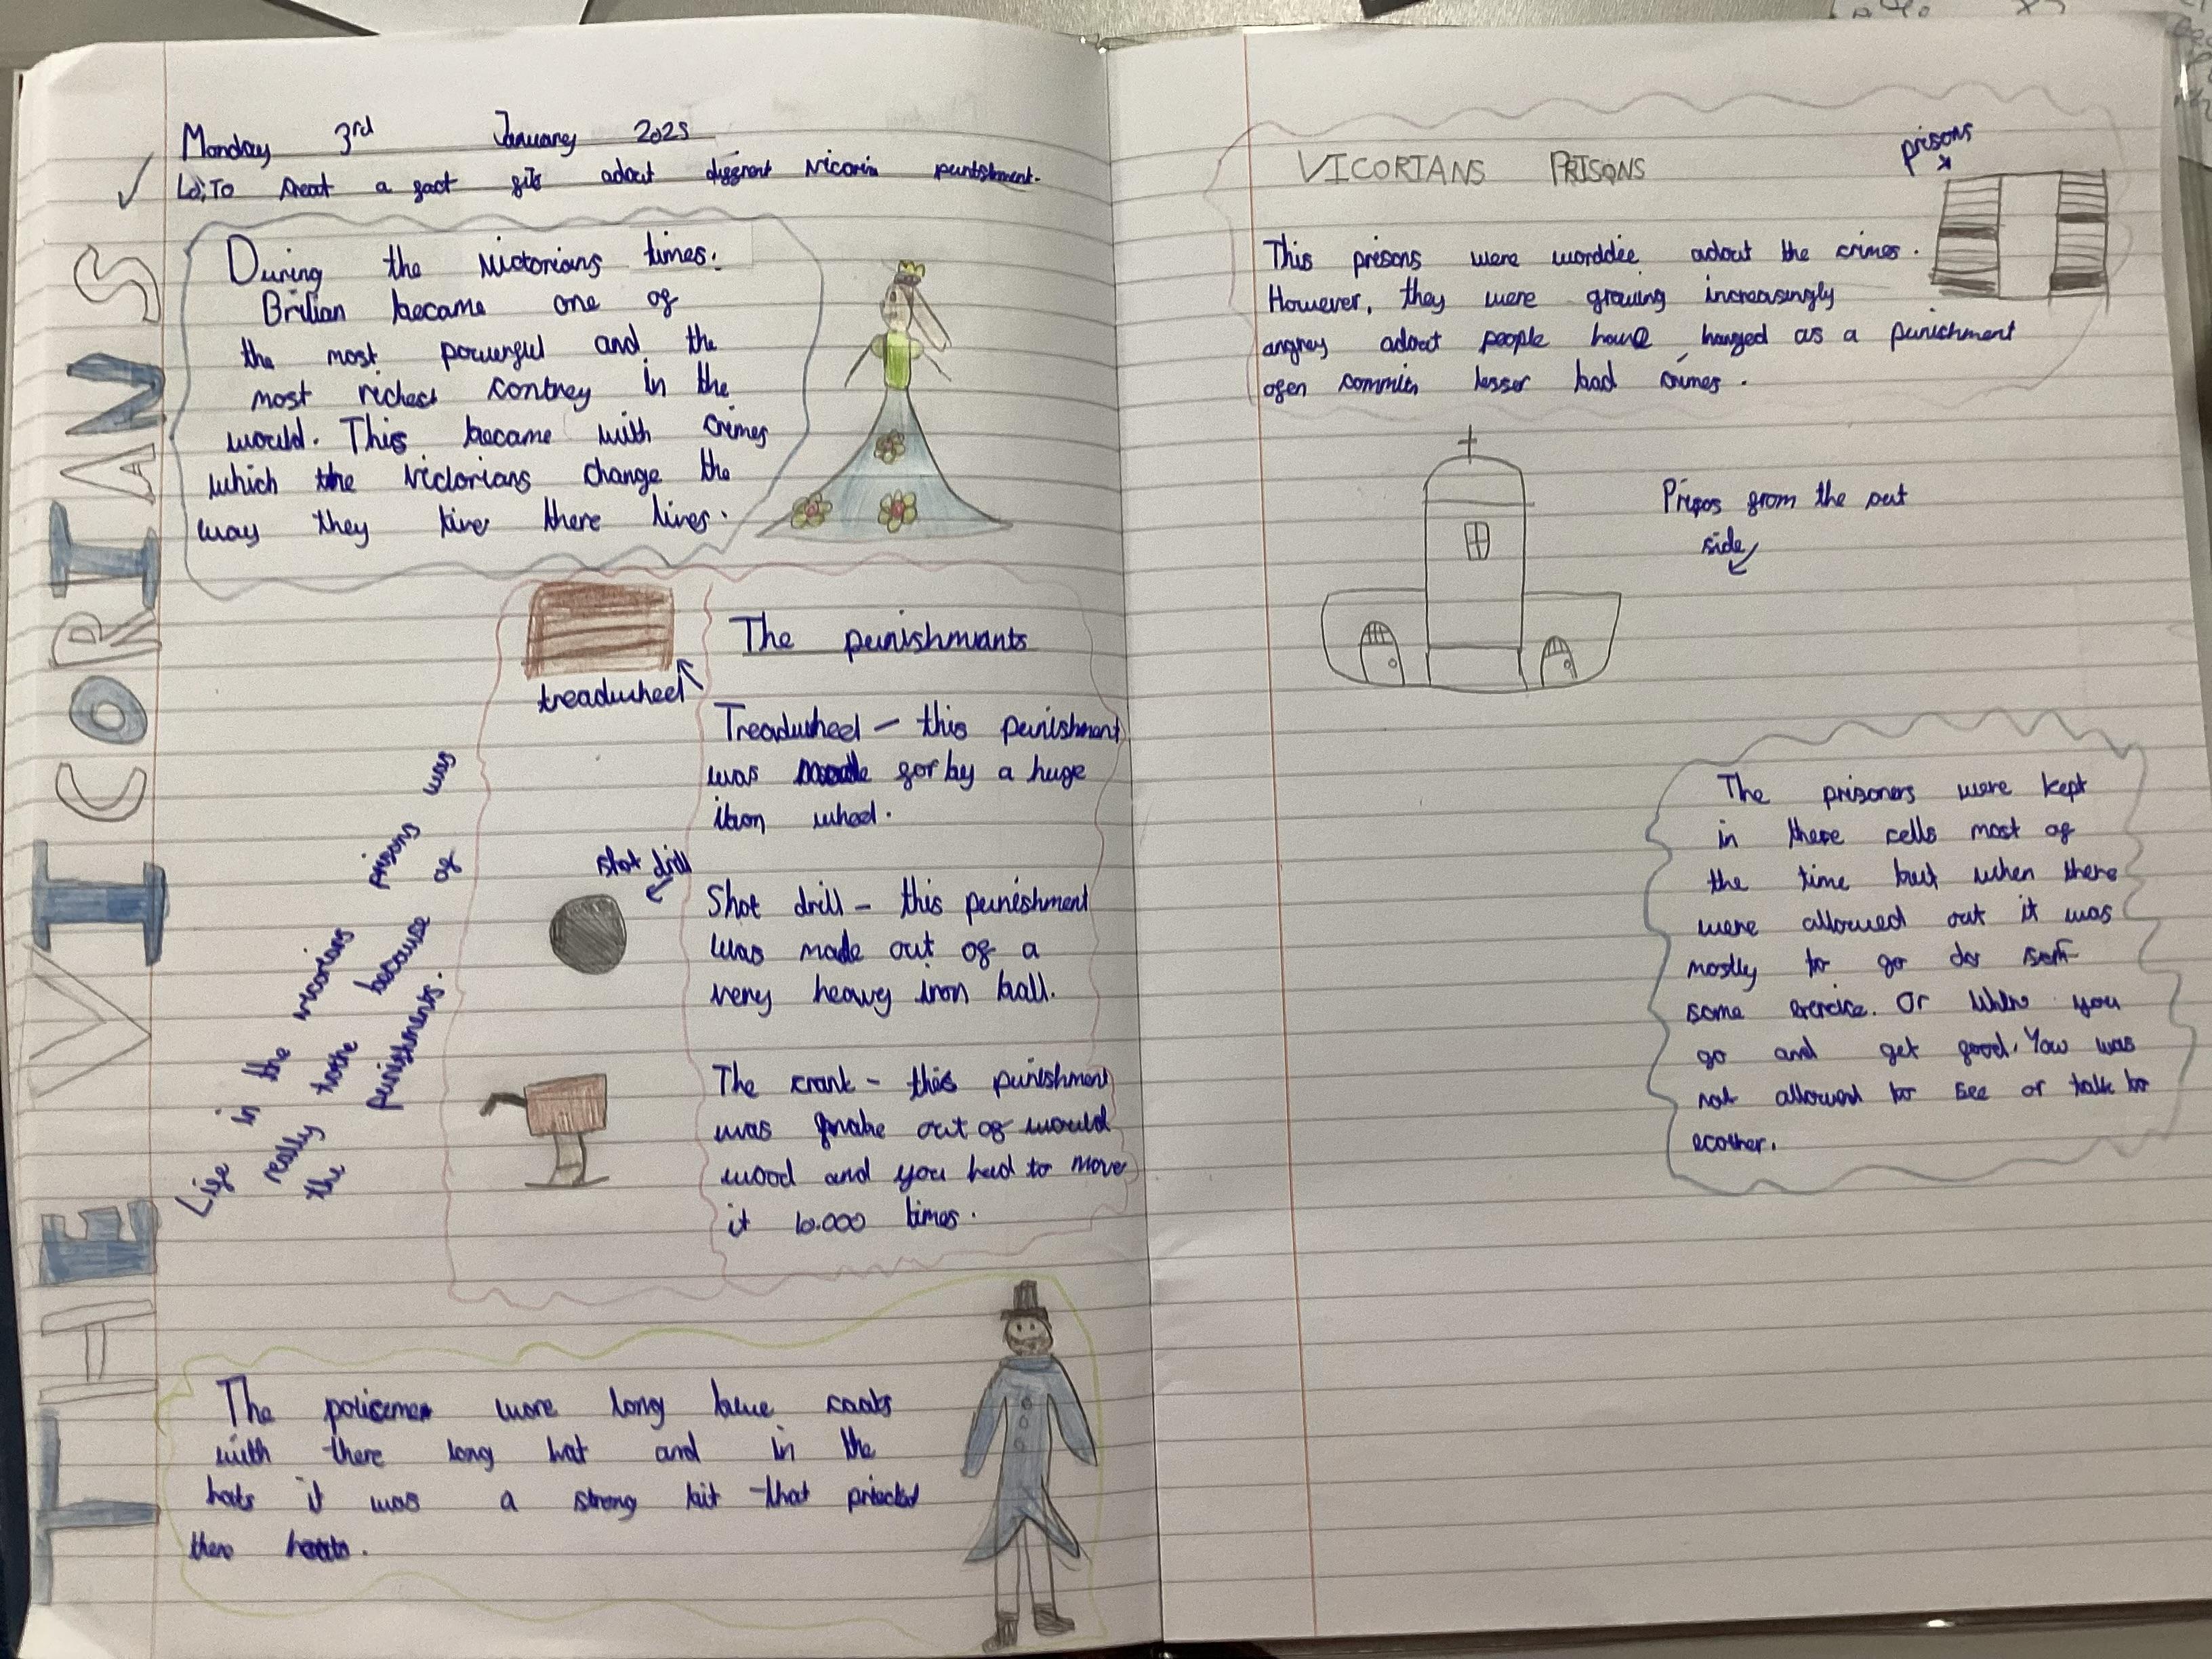 THE VICORIANS
Monday 3rd January 2025
Lo; To a gact adout Nicorin punishment.
During the Nictorians times:
Britian became one of
the most powergul and the
most richest contrey in the
would. This became with crimes
which the Victorians change the
way they live there lives.
treadwheel
The punishmants
Treadwheel - this punishment
was gor by a huge
wheel.
shot drill
Shot drill - this punishment
was made out of a
very heavy iron ball.
The crank - this punishment
was make out of would
wood and you had to move
it 10.000 times.
Lige in the vicorians prisons was
really because of
the punishments.
The policemen wore long blue coats
with there long hat and in the
hats it was a strong bit that
there
VICORIANS PRISONS
prisons
This prisons were adout the crimes.
However, they were growing increasingly
angrey adout people hanged as a punishment
ogen commit lesser bad crimes.
grom the out
side
The prisoners were kept
in there cells most og
the time but when there
were allowed out it was
mostly to go do
some exercise. Or when you
go and get good. You was
not allowed to see or talk to
ecother.